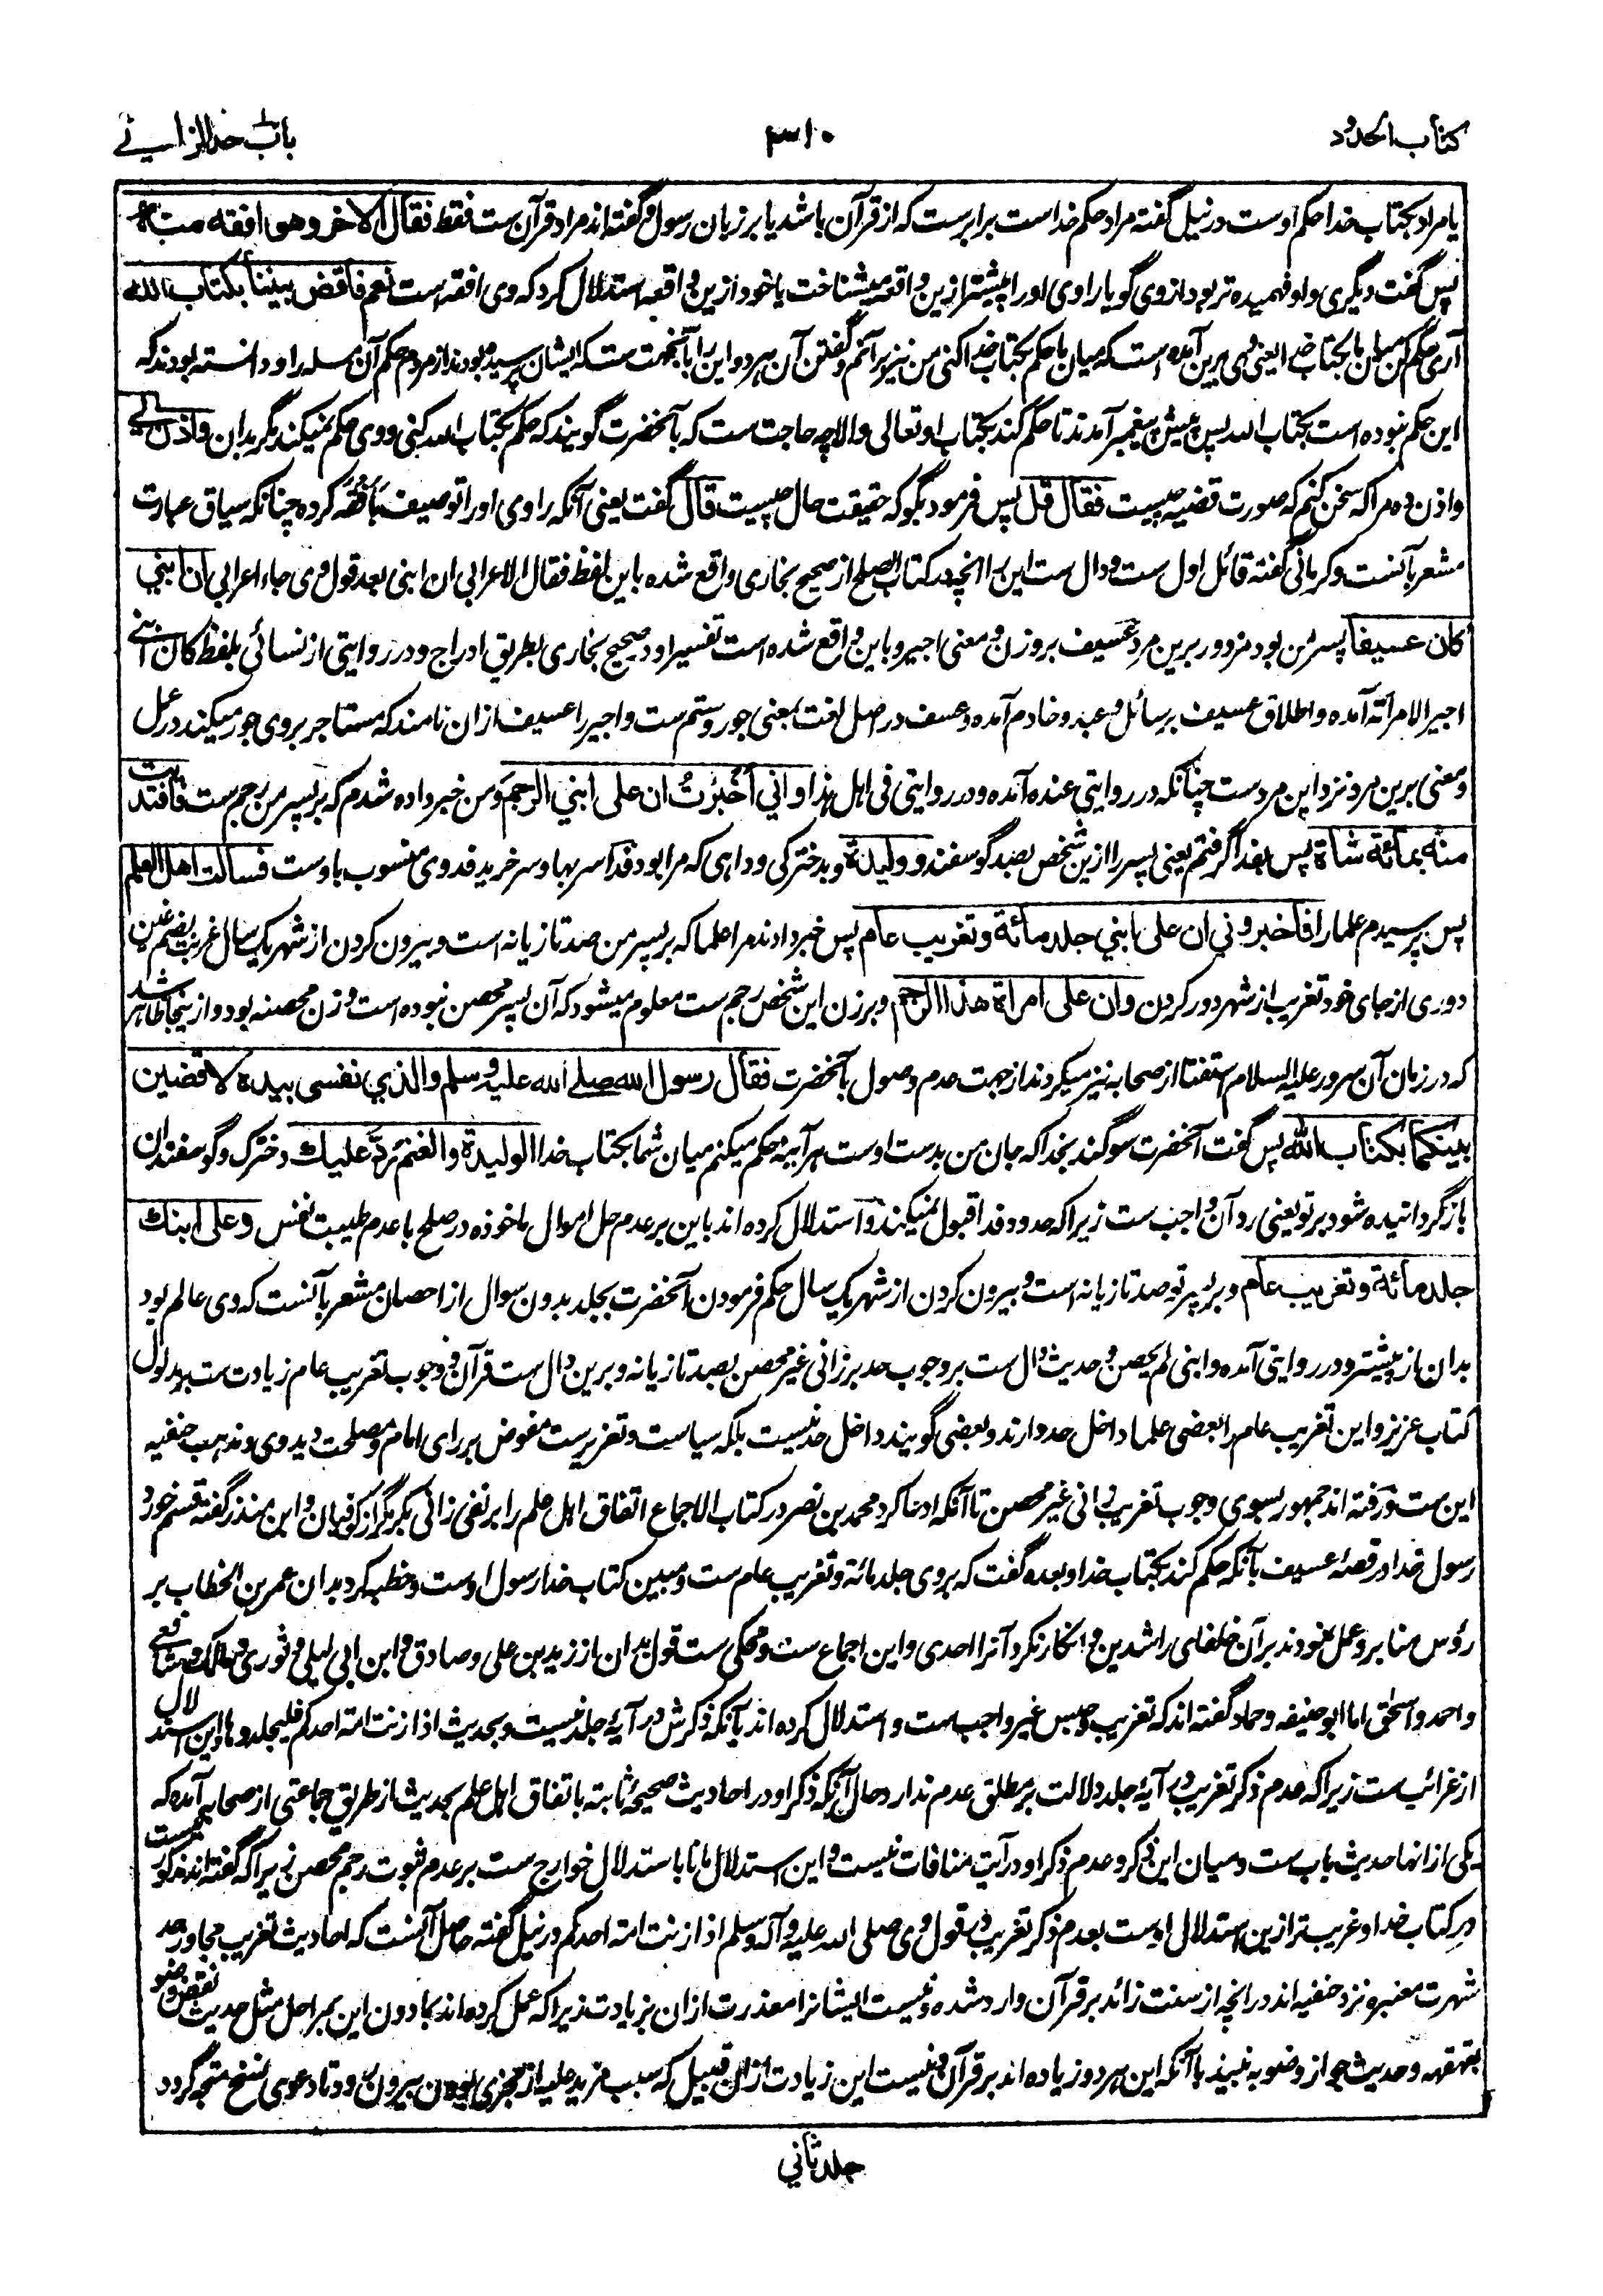 کتاب الحدود
۳۱۰
باب حد الزانے
یا مراد بکتاب خدا حکم اوست در نیل گفته مراد حکم خداست برابرست که از قرآن باشد یا بر زبان رسول و گفته‌اند مراد قرآن ست فقط فقال الاخر وهو افقه منه
پس گفت دیگری و او فهمیده تر بود از وی گویا راوی او را پیشتر ازین واقعه میشناخت یا خود ازین واقعه استدلال کرد که وی افقه است نعم فاقض بیننا بکتاب الله
آری حکم کن میان ما بکتاب خدا یعنی وی برین آمده است که میان ما حکم بکتاب خدا کنی من نیز برآنم و گفتن آن هر دو این را بآنجهت ست که ایشان پرسیده بودند از مردم حکم آن مسئله را و دانسته بودند که
این حکم نبوده است بکتاب الله پس پیش پیغمبر آمدند تا حکم کند بکتاب او تعالی والا چه حاجت ست که بآنحضرت گویند که حکم بکتاب الله کنی و وی حکم نمیکند مگر بدان واذن لے
واذن ده مرا که سخن کنم که صورت قضیه چیست فقال قل پس فرمود بگو که حقیقت حال چیست قال گفت یعنی آنکه راوی او را توصیف بافقه کرده چنانکه سیاق عبارت
مشعر بآنست و کرمانی گفته قائل اول ست و دال ست این را آنچه در کتاب الصلح از صحیح بخاری واقع شده باین لفظ فقال الاعرابی ان ابنی بعد قول وی جاء اعرابی ان ابني
کان عسیفا پسر من بود مزدور برین مرد عسیف بروزن و معنی اجیر و باین واقع شده است تفسیر او در صحیح بخاری بطریق ادراج و در روایتی از نسائی بلفظ کان ابنے
اجیرا لامراته آمده و اطلاق عسیف بر سائل و عبد و خادم آمده و عسف در اصل لغت بمعنی جور و ستم ست و اجیر را عسیف ازان نامند که مستاجر بروی جور میکند در عمل
و معنی برین مرد نزد این مردست چنانکه در روایتی عنده آمده و در روایتی فی اهل هذا واني أخبرت ان علی ابني الرجم و من خبر داده شدم که بر پسر من رجم ست فافتدیت
منه بمائة شاة پس بفدا گرفتم یعنی پسر را ازین شخص بصد گوسفند و ولیدة و بدخترکی و داهی که مرا بود فدا سر بها و سر خرید فدوی منسوب باوست فسالت اهل العلم
پس پرسیدم علما را فاخبروني ان علی ابني جلد مائة و تغریب عام پس خبر دادند مرا علما که بر پسر من صد تازیانه است و بیرون کردن از شهر یکسال غربت بضم غین
دوری از جای خود تغریب از شهر دور کردن وان علی امراة هذا الرجم و بر زن این شخص رجم ست معلوم میشود که آن پسر محصن نبوده است و زن محصنه بود و از ینجا ظاهر شد
که در زمان آن سرور علیه السلام استفتا از صحابه نیز میکردند از جهت عدم وصول بآنحضرت فقال رسول الله صلے الله علیه وسلم والذي نفسی بیده لاقضین
بینکما بکتاب الله پس گفت آنحضرت سوگند بخدا که جان من بدست اوست هر آیینه حکم میکنم میان شما بکتاب خدا الولیدة والغنم ردّ علیك دخترک و گوسفندان
بازگردانیده شود بر تو یعنی رد آن واجب ست زیرا که حدود فدا قبول نمیکند و استدلال کرده‌اند باین بر عدم حل اموال ماخوذه در صلح با عدم طیبت نفس وعلی ابنك
جلد مائة و تغریب عام و بر پسر تو صد تازیانه است و بیرون کردن از شهر یک سال حکم فرمودن آنحضرت بجلد بدون سوال از احصان مشعر بآنست که وی عالم بود
بدان باز پیشتر و در روایتی آمده وابنی لم یحصن و حدیث دال ست بر وجوب حد بر زانی غیر محصن بصد تازیانه و برین دال ست قرآن و وجوب تغریب عام زیادت ست بر مدلول
کتاب عزیز و این تغریب عام را بعضی علما داخل حد دارند و بعضی گویند داخل حد نیست بلکه سیاست و تعزیرست مفوض بر رای امام و مصلحت دید وی و مذهب حنفیه
این ست و رفته‌اند جمهور بسوی وجوب تغریب زانی غیر محصن تا آنکه ادعا کرد محمد بن نصر در کتاب الاجماع اتفاق اهل علم را بر نفی زانی بکر مگر از کوفیان و ابن منذر گفته قسم خورد
رسول خدا در قصهٔ عسیف بآنکه حکم کند بکتاب خدا و بعده گفت که بروی جلد مائة و تغریب عام ست و مبین کتاب خدا رسول اوست و خطبه کرد بدان عمر بن الخطاب بر
رؤس منابر و عمل نمودند بران خلفای راشدین و انکار نکرد آنرا احدی و این اجماع ست و محکی ست قول بدان از زید بن علی و صادق و ابن ابی لیلی و ثوری و مالک و شافعے
و احمد و اسحٰق اما ابو حنیفه و حماد گفته‌اند که تغریب و حبس غیر واجب ست و استدلال کرده‌اند بآنکه ذکرش در آیهٔ جلد نیست و بحدیث اذا زنت امة احدکم فلیجلدوها و این استدلال
از غرائب ست زیرا که عدم ذکر تغریب در آیهٔ جلد دلالت بر مطلق عدم ندارد حال آنکه ذکر او در احادیث صحیحهٔ ثابته باتفاق اهل علم بحدیث از طریق جماعتی از صحابه آمده که
یکی از انها حدیث باب ست و میان این ذکر و عدم ذکر او در آیت منافات نیست و این استدلال مانا باستدلال خوارج ست بر عدم ثبوت رجم محصن زیرا که گفته‌اند مذکور نیست
در کتاب خدا و غریب تر ازین استدلال اوست بعدم ذکر تغریب در قول وی صلی الله علیه و آله وسلم اذا زنت امة احدکم در نیل گفته حاصل آنست که احادیث تغریب مجاوز حد
شهرت معتبر و نزد حنفیه‌اند در انچه از سنت زائد بر قرآن وارد شده و نیست ایشانرا معذرت ازان بزیادت زیرا که عمل کرده‌اند بما دون این بمراحل مثل حدیث نقض وضو
بقهقهه و حدیث جواز وضو به نبیذ با آنکه این هر دو زیاده‌اند بر قرآن و نیست این زیادت ازان قبیل که سبب مزید علیه از مجزی بودن بیرون رود تا دعوی نسخ متجه گردد
جلد ثانی